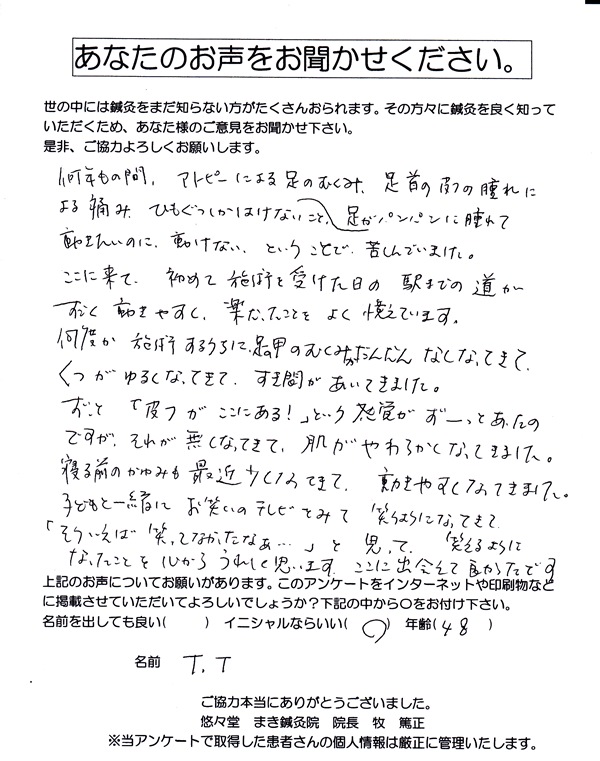 あなたのお声をお聞かせください。
世の中には鍼灸をまだ知らない方がたくさんおられます。その方々に鍼灸を良く知って
いただくため、あなた様のご意見をお聞かせ下さい。
是非、ご協力よろしくお願いします。
何年もの間、アトピーによる足のむくみ、足首の皮フの腫れに
よる痛み、ひもぐつしかはけないこと、足がパンパンに腫れて
動きたいのに、動けない、ということで、苦しんでいました。
ここに来て、初めて施術を受けた日の駅までの道が
すごく動きやすく、楽だったことをよく憶えています。
何度か施術するうちに、足の甲のむくみがだんだんなくなってきて、
くつがゆるくなってきて、すき間があいてきました。
ずっと「皮フがここにある!」という感覚がずーっとあったの
ですが、それが無くなってきて、肌がやわらかくなってきました。
寝る前のかゆみも最近少くなってきて、動きやすくなってきました。
子どもと一緒にお笑いのテレビをみて笑うようになってきて
「そういえば笑ってなかったなぁ…」と思って、笑えるように
なったことを心からうれしく思います。ここに出会えて良かったです
上記のお声についてお願いがあります。このアンケートをインターネットや印刷物など
に掲載させていただいてよろしいでしょうか?下記の中から○をお付け下さい。
名前を出しても良い( ) イニシャルならいい( ○ ) 年齢( 48 )
名前 T.T
ご協力本当にありがとうございました。
悠々堂 まき鍼灸院 院長 牧 篤正
※当アンケートで取得した患者さんの個人情報は厳正に管理いたします。